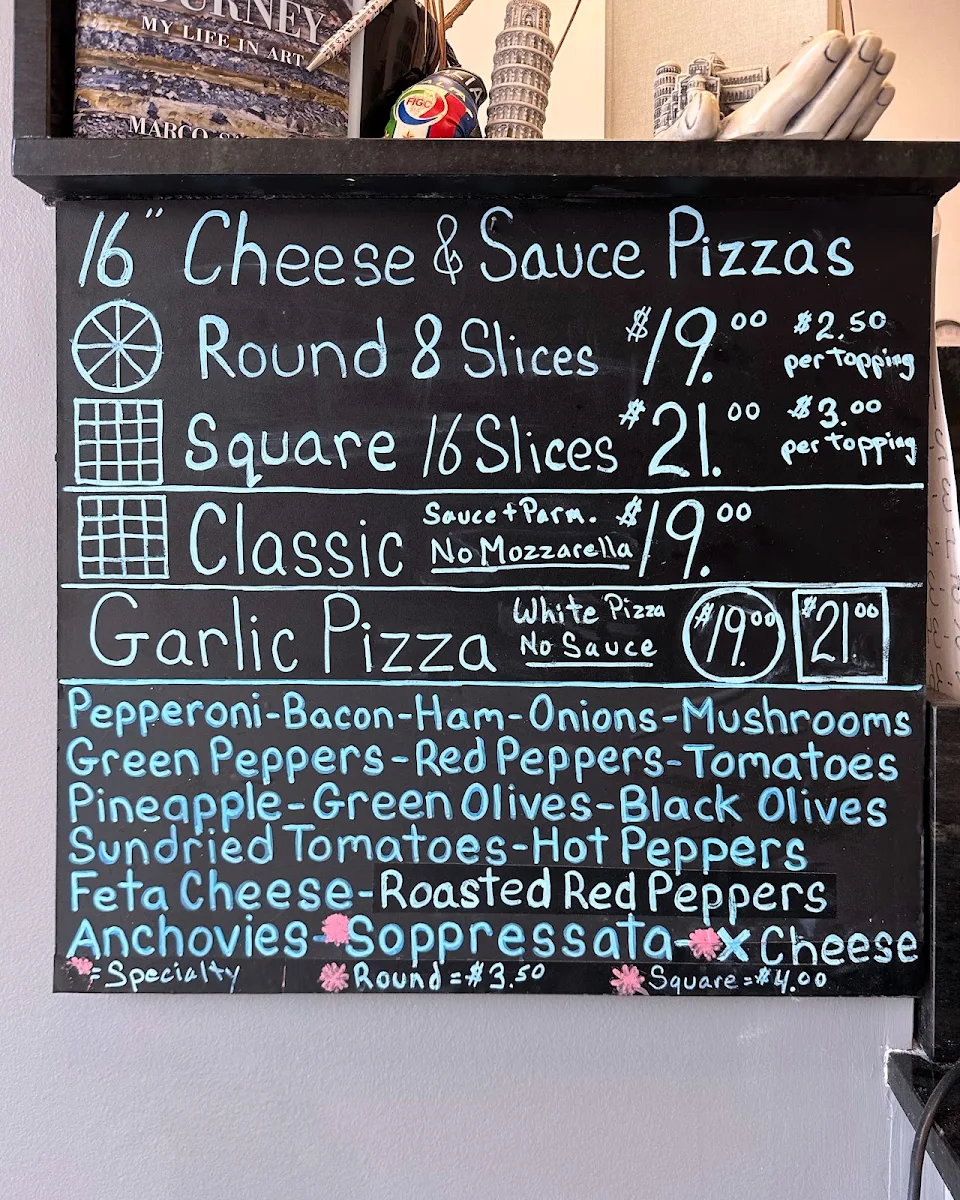 URNEY
MY LIFE IN ART
MARCO
FIGC
16" Cheese & Sauce Pizzas
Round 8 Slices $19.00 $2.50 per topping
Square 16 Slices $21.00 $3.00 per topping
Classic Sauce + Parm. No Mozzarella $19.00
Garlic Pizza White Pizza No Sauce $19.00 $21.00
Pepperoni-Bacon-Ham-Onions-Mushrooms
Green Peppers-Red Peppers-Tomatoes
Pineapple-Green Olives-Black Olives
Sundried Tomatoes-Hot Peppers
Feta Cheese-Roasted Red Peppers
Anchovies-*Soppressata-*X Cheese
*=Specialty *Round=$3.50 *Square=$4.00